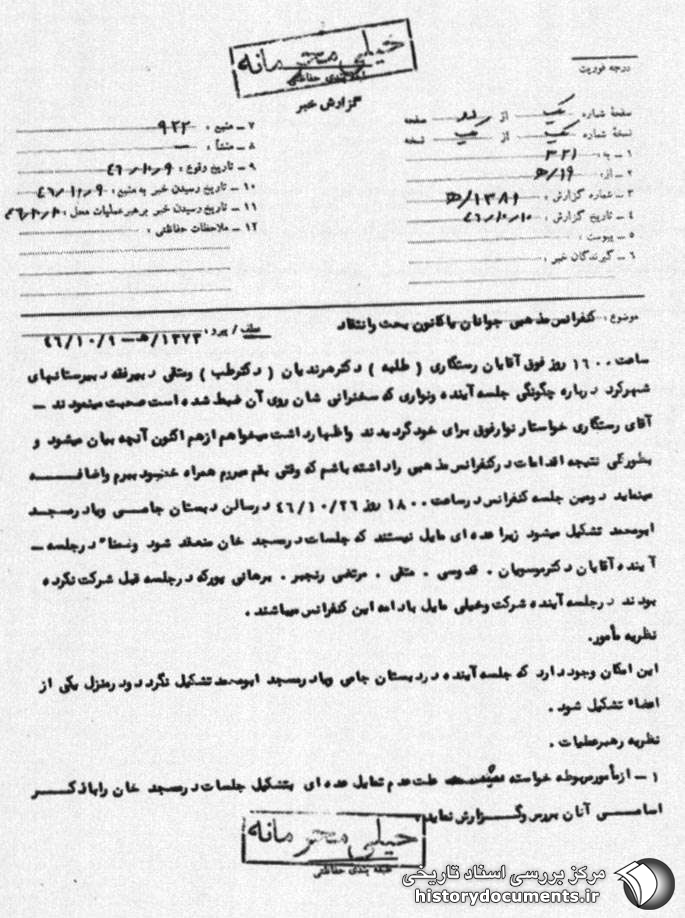 خیلی محرمانه
طبقه بندی حفاظتی
گزارش خبر
درجه فوریت
صفحهٔ شماره یک از صفحه
نسخهٔ شماره یک از یک نسخه
۱ ــ به : ۳۲۱
۲ ــ از : ۱۹/ﻫ
۳ ــ شماره گزارش : ۱۳۸۱/ﻫ
۴ ــ تاریخ گزارش : ۴۶/۱۰/۱۰
۵ ــ پیوست :
۶ ــ گیرندگان خبر :
۷ ــ منبع : ۹۲۲
۸ ــ منشأ : ــ
۹ ــ تاریخ وقوع : ۴۶/۱۰/۹
۱۰ ــ تاریخ رسیدن خبر به منبع : ۴۶/۱۰/۹
۱۱ ــ تاریخ رسیدن خبر برهبر عملیات محل : ۴۶/۱۰/۱۰
۱۲ ــ ملاحظات حفاظتی :
موضوع : کنفرانس مذهبی جوانان یا کانون بحث و انتقاد عطف / پیرو : ۱۳۷۳/ﻫ ــ ۴۶/۱۰/۹
ساعت ۱۶۰۰ روز فوق آقایان رستگاری ( طلبه ) دکتر هرندیان ( دکتر طب ) و متقی دبیر فقه دبیرستانهای
شهرکرد درباره چگونگی جلسه آینده و نواری که سخنرانی شان روی آن ضبط شده است صحبت مینمودند ــ
آقای رستگاری خواستار نوار فوق برای خود گردیدند و اظهار داشت میخواهم از هم اکنون آنچه بیان میشود و
بطور کلی نتیجه اقدامات در کنفرانس مذهبی را داشته باشم که وقتی بقم میروم همراه خود ببرم و اضافه
مینماید دومین جلسه کنفرانس در ساعت ۱۸۰۰ روز ۴۶/۱۰/۲۶ در سالن دبستان جامی و یا در مسجد
ابومحمد تشکیل میشود زیرا عده ای مایل نیستند که جلسات در مسجد خان منعقد شود و ضمناً در جلسه ــ
آینده آقایان دکتر موسویان . قدوسی . متقی . مرتضی رنجبر . برهانی پور که در جلسه قبل شرکت نکرده
بودند در جلسه آینده شرکت و خیلی مایل بادامه این کنفرانس میباشند .
نظریه مأمور.
این امکان وجود دارد که جلسه آینده در دبستان جامی و یا در مسجد ابومحمد تشکیل نگردد و در منزل یکی از
اعضاء تشکیل شود .
نظریه رهبر عملیات .
۱ ــ از مأمور مربوطه خواسته علت عدم تمایل عده ای بتشکیل جلسات در مسجد خان را با ذکر
اسامی آنان بررسی و گزارش نماید .
خیلی محرمانه
طبقه بندی حفاظتی
مرکز بررسی اسناد تاریخی
historydocuments.ir